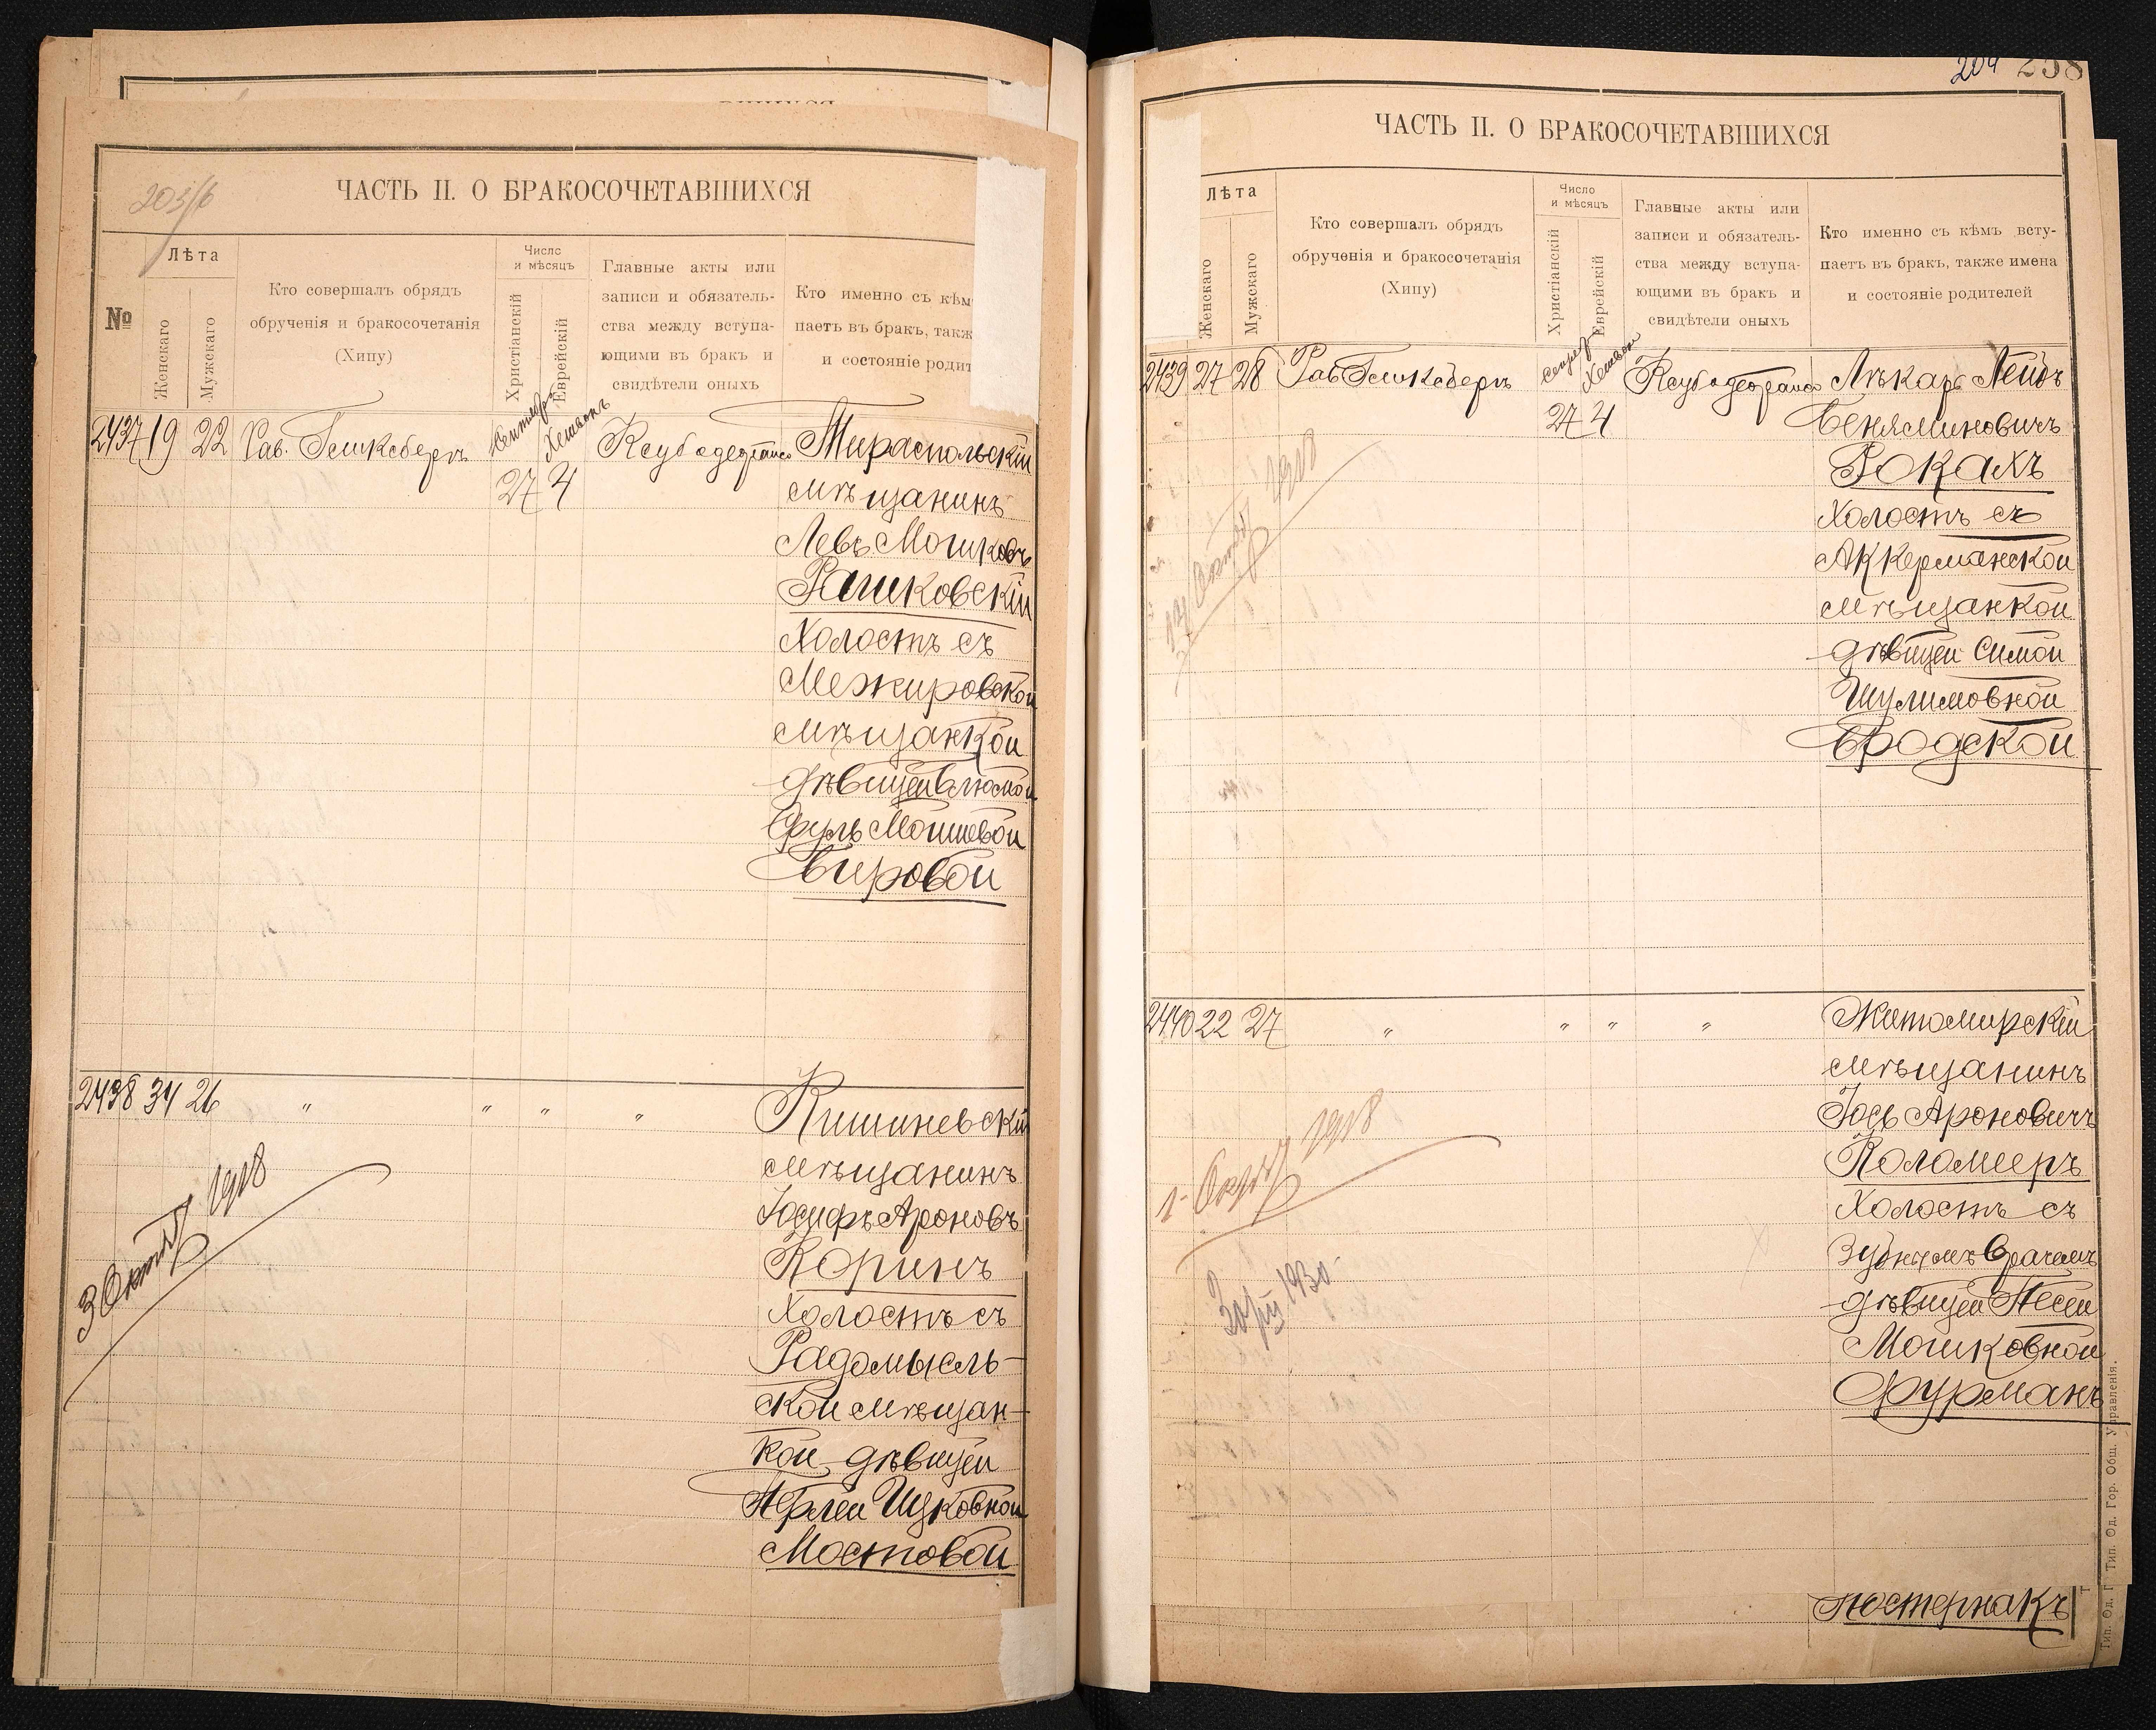 203/б
ЧАСТЬ II. О БРАКОСОЧЕТАВШИХСЯ
№
Лѣта
Женскаго
Мужскаго
Кто совершалъ обрядъ
обрученія и бракосочетанія
(Хипу)
Число
и мѣсяцъ
Христіанскій
Еврейскій
Главные акты или
записи и обязатель-
ства между вступа-
ющими въ бракъ и
свидѣтели оныхъ
Кто именно съ кѣм
паетъ въ бракъ, такж
и состояніе родит
2437 19 22 Рав. Гликсбергъ
Сентябрь
Хешвонъ
27 4
Тираспольскій
мѣщанинъ
Левъ Мошковъ
Рашковскій
Холостъ съ
Межировской
мѣщанкой
дѣвицей Блюмой
Фруль Мошковой
Бировой
2438 34 26 " " " "
Кишиневскій
мѣщанинъ
Іосифъ Ароновъ
Коринъ
Холостъ съ
Радомысль-
ской мѣщан-
кой дѣвицей
Перлей Ицковной
Мостовой
3 Октяб 1918
204 258
ЧАСТЬ II. О БРАКОСОЧЕТАВШИХСЯ
Лѣта
Женскаго
Мужскаго
Кто совершалъ обрядъ
обрученія и бракосочетанія
(Хипу)
Число
и мѣсяцъ
Христіанскій
Еврейскій
Главные акты или
записи и обязатель-
ства между вступа-
ющими въ бракъ и
свидѣтели оныхъ
Кто именно съ кѣмъ всту-
паетъ въ бракъ, также имена
и состояніе родителей
2439 27 28 Рав Гликсбергъ
Хешвон
27 4
Лѣкарь Лейбъ
Беняминовичъ
Рокахъ
Холостъ съ
Аккерманской
мѣщанкой
дѣвицей Симой
Шулимовной
Бродской
1918
2440 22 27 " " " "
Житомирскій
мѣщанинъ
Іось Ароновичъ
Коломееръ
Холостъ съ
Зубнымъ Врачемъ
дѣвицей Песей
Мошковной
Фурманъ
1 Октяб 1918
1930
Тип. Од. Гор. Общ. Управленія.
Постернакъ
Тип. Од. Г